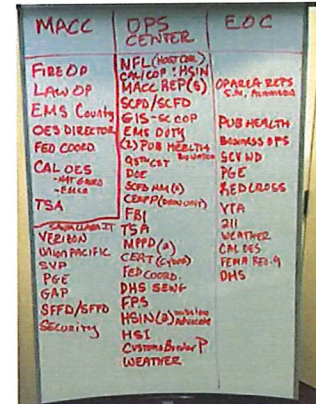 MACC
FIRE OP
LAW OP
EMS County
OES DIRECTOR
FED COORD.
CAL OES
TSA
VERIZON
UNION PACIFIC
SVP
PGE
GAP
SFFD/SFPD
SECURITY
OPS CENTER
NFL (HOST COM.)
CAL COP : HSIN
MACC REP(S)
SCPD/SCFD
GIS-SCCOP
EMS DUTY
(2) PUB HEALTH
DOE
FBI
TSA
MPPD (2)
CERT (CYBER)
FED COORD.
DHS SEWG
FPS
HSIN (2)
HSI
Customs Border P
WEATHER
EOC
OPAREA REPS
S.M., ALAMEDA
PUB HEALTH
BUSINESS OPS
SCVWD
PGE
REDCROSS
VTA
211
WEATHER
CAL OES
FEMA REG. 9
DHS